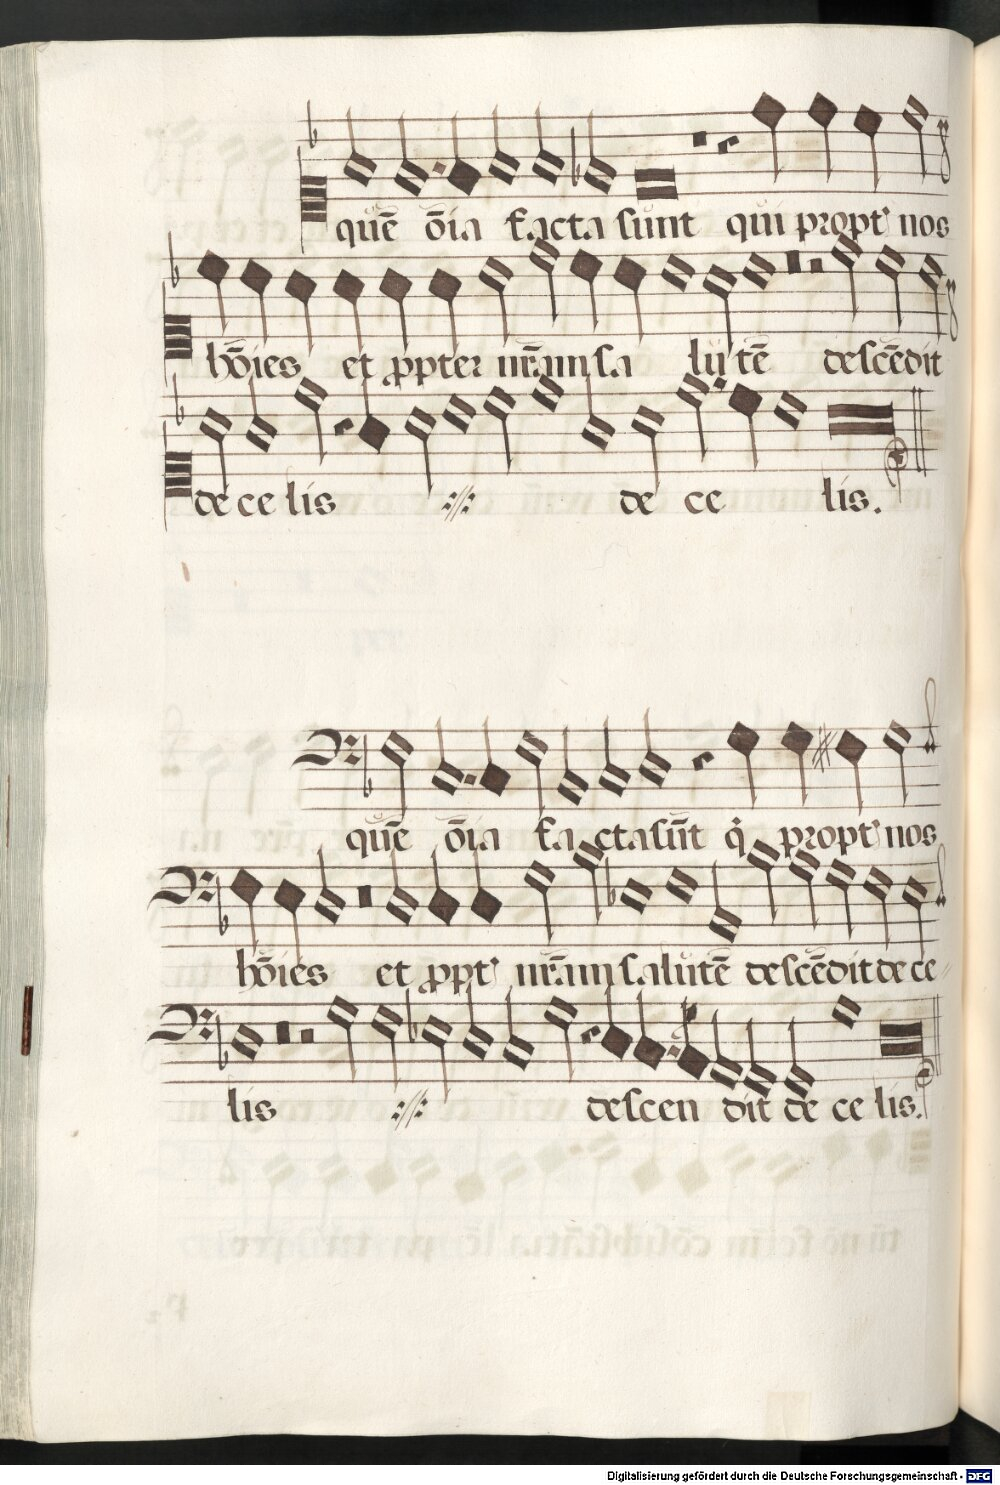 quē ōia facta sunt qui propt' nos
hōies et ꝓpter nr̄am sa lu tē descēdit
de ce lis de ce lis.
quē ōia facta sūt q̇ propt' nos
hōies et ꝓpt' nr̄am salutē descēdit de ce
lis descen dit de ce lis.
Digitalisierung gefördert durch die Deutsche Forschungsgemeinschaft - DFG